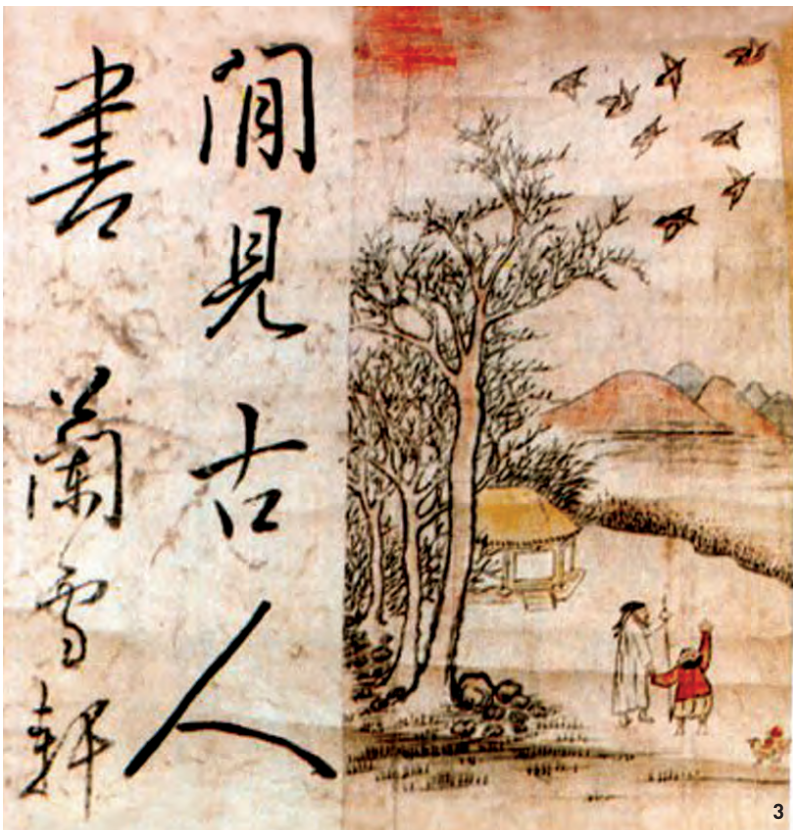 閒見古人
書 蘭雪軒
3